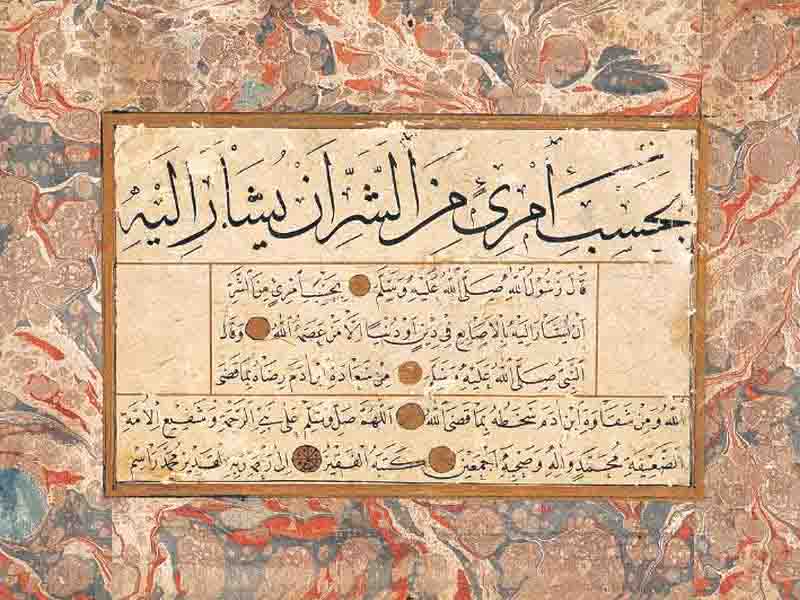 بِحَسْبِ أَمْرِئٍ مِنَ الشَّرِّ أَنْ يُشَارَ إِلَيْهِ
قَالَ رَسُولُ اللهِ صَلَّى اللهُ عَلَيْهِ وَسَلَّمَ بِحَسْبِ امْرِئٍ مِنَ الشَّرِّ
أَنْ يُشَارَ إِلَيْهِ بِالْأَصَابِعِ فِي دِينٍ أَوْ دُنْيَا إِلَّا مَنْ عَصَمَهُ اللهُ وَقَالَ
النَّبِيُّ صَلَّى اللهُ عَلَيْهِ وَسَلَّمَ مِنْ سَعَادَةِ ابْنِ آدَمَ رِضَاهُ بِمَا قَضَى
اللهُ وَمِنْ شَقَاوَةِ ابْنِ آدَمَ سَخَطُهُ بِمَا قَضَى اللهُ اَللّٰهُمَّ صَلِّ وَسَلِّمْ عَلَى نَبِيِّ الرَّحْمَةِ وَشَفِيعِ الْأُمَّةِ
الضَّعِيفَةِ مُحَمَّدٍ وَآلِهِ وَصَحْبِهِ أَجْمَعِينَ كَتَبَهُ الْفَقِيرُ إِلَى رَحْمَةِ رَبِّهِ الْقَدِيرِ مُحَمَّد رَاسِم